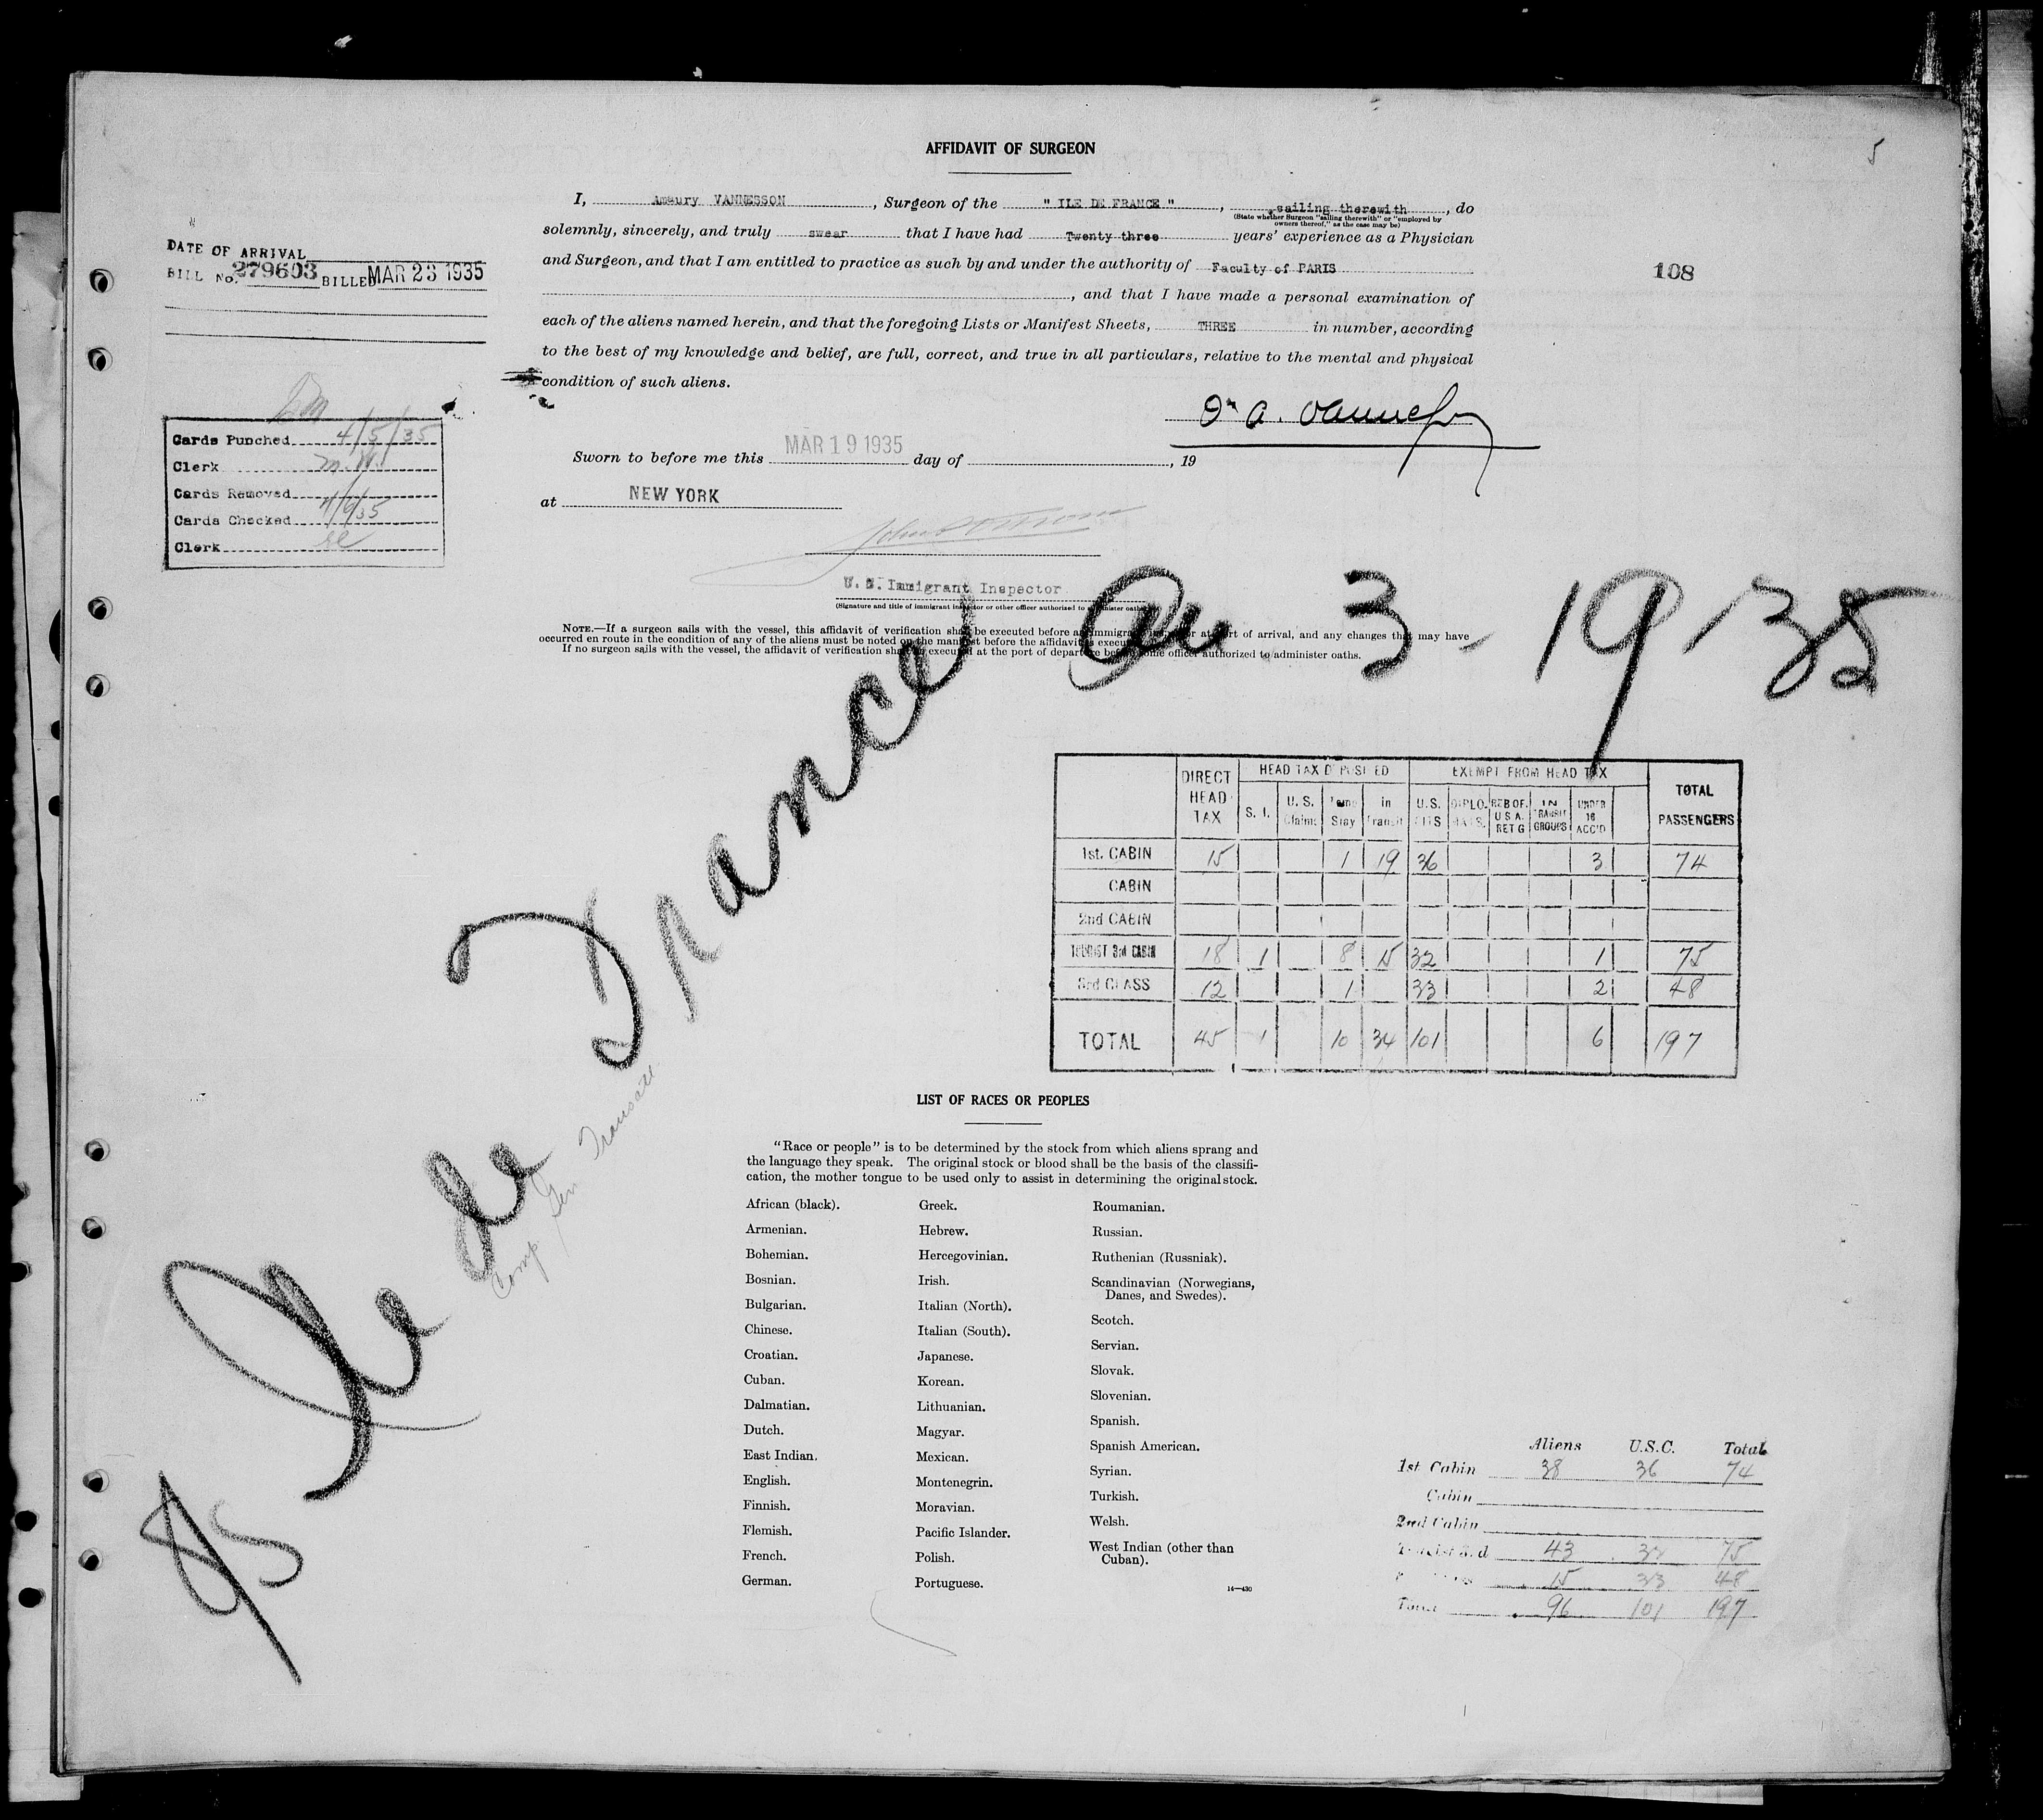 5
AFFIDAVIT OF SURGEON
I, Amaury VANNESSON, Surgeon of the " ILE DE FRANCE ", sailing therewith, do
(State whether Surgeon "sailing therewith" or "employed by
owners thereof," as the case may be)
solemnly, sincerely, and truly swear that I have had Twenty three years' experience as a Physician
and Surgeon, and that I am entitled to practice as such by and under the authority of Faculty of PARIS
, and that I have made a personal examination of
each of the aliens named herein, and that the foregoing Lists or Manifest Sheets, THREE in number, according
to the best of my knowledge and belief, are full, correct, and true in all particulars, relative to the mental and physical
condition of such aliens.
DATE OF ARRIVAL
BILL No. 279603 BILLED MAR 23 1935
108
Cards Punched 4/5/35
Clerk M.W.
Cards Removed
Cards Checked 4/6/35
Clerk
Dr A. Vannesson
Sworn to before me this MAR 19 1935 day of , 19
at NEW YORK
U. S. Immigrant Inspector
(Signature and title of immigrant inspector or other officer authorized to administer oaths)
NOTE.—If a surgeon sails with the vessel, this affidavit of verification shall be executed before an immigrant officer at port of arrival, and any changes that may have
occurred en route in the condition of any of the aliens must be noted on the manifest before the affidavit is executed.
If no surgeon sails with the vessel, the affidavit of verification shall be executed at the port of departure before some officer authorized to administer oaths.
SS Ile de France 3-19-35
Comp Gen Transatl
DIRECT HEAD TAX HEAD TAX DEPOSITED EXEMPT FROM HEAD TAX TOTAL PASSENGERS
S. I. U. S. Claims Temp Stay in Transit U.S. CITS DIPLOMATS. RES OF. U S A. RET G IN TRANSIT GROUPS UNDER 16 ACC'D
1st. CABIN 15 1 19 36 3 74
CABIN
2nd CABIN
TOURIST 3rd CABIN 18 1 8 15 32 1 75
3rd CLASS 12 1 33 2 48
TOTAL 45 1 10 34 101 6 197
LIST OF RACES OR PEOPLES
"Race or people" is to be determined by the stock from which aliens sprang and
the language they speak. The original stock or blood shall be the basis of the classifi-
cation, the mother tongue to be used only to assist in determining the original stock.
African (black).
Armenian.
Bohemian.
Bosnian.
Bulgarian.
Chinese.
Croatian.
Cuban.
Dalmatian.
Dutch.
East Indian.
English.
Finnish.
Flemish.
French.
German.
Greek.
Hebrew.
Hercegovinian.
Irish.
Italian (North).
Italian (South).
Japanese.
Korean.
Lithuanian.
Magyar.
Mexican.
Montenegrin.
Moravian.
Pacific Islander.
Polish.
Portuguese.
Roumanian.
Russian.
Ruthenian (Russniak).
Scandinavian (Norwegians,
Danes, and Swedes).
Scotch.
Servian.
Slovak.
Slovenian.
Spanish.
Spanish American.
Syrian.
Turkish.
Welsh.
West Indian (other than
Cuban).
14—430
Aliens U.S.C. Total
1st Cabin 38 36 74
Cabin
2nd Cabin
Tourist 3.d 43 32 75
15 33 48
Total 96 101 197